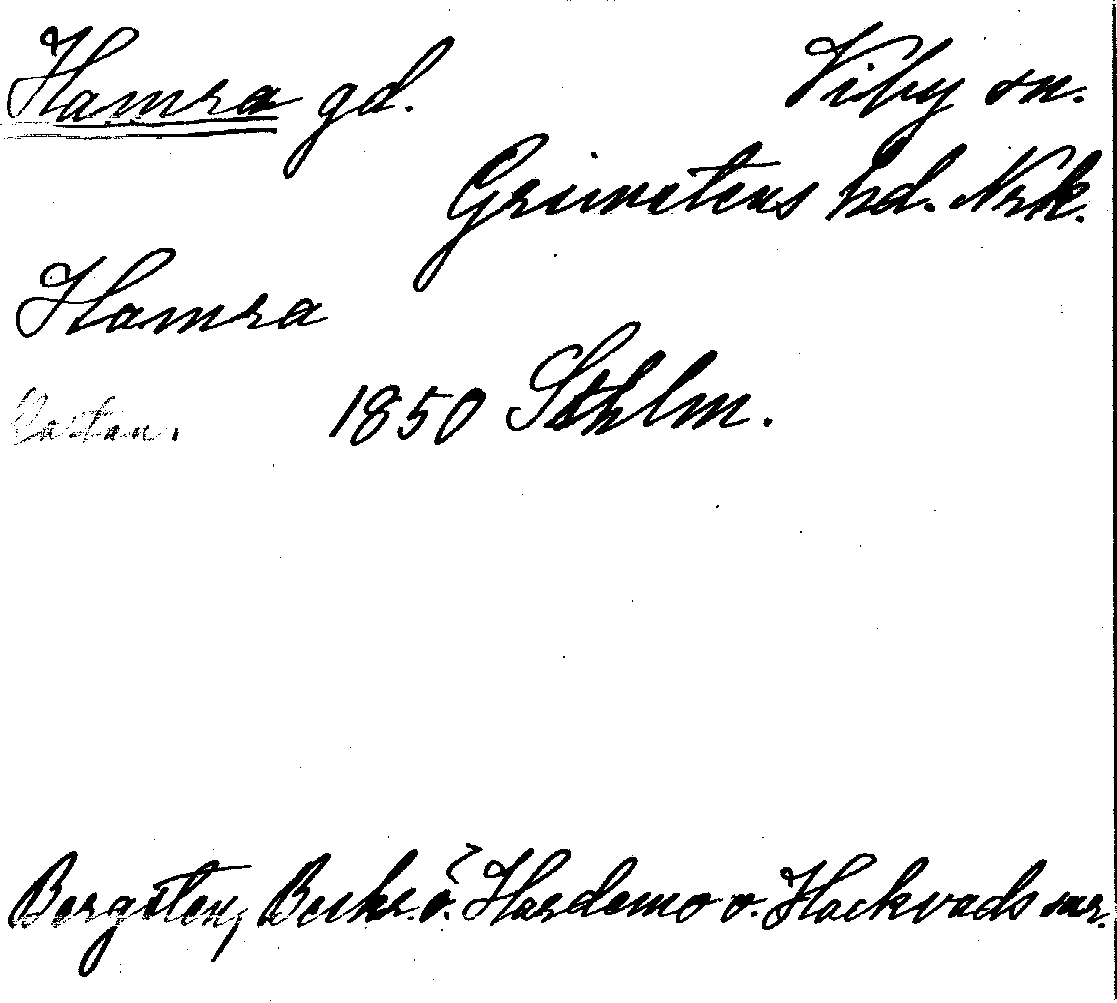 Hamra gd. Viby sn.
Grimstens hd. Nrk.
Hamra
1850 Sthlm.
Bergsten, Beskr. ö. Hardemo o. Hackvads snr.